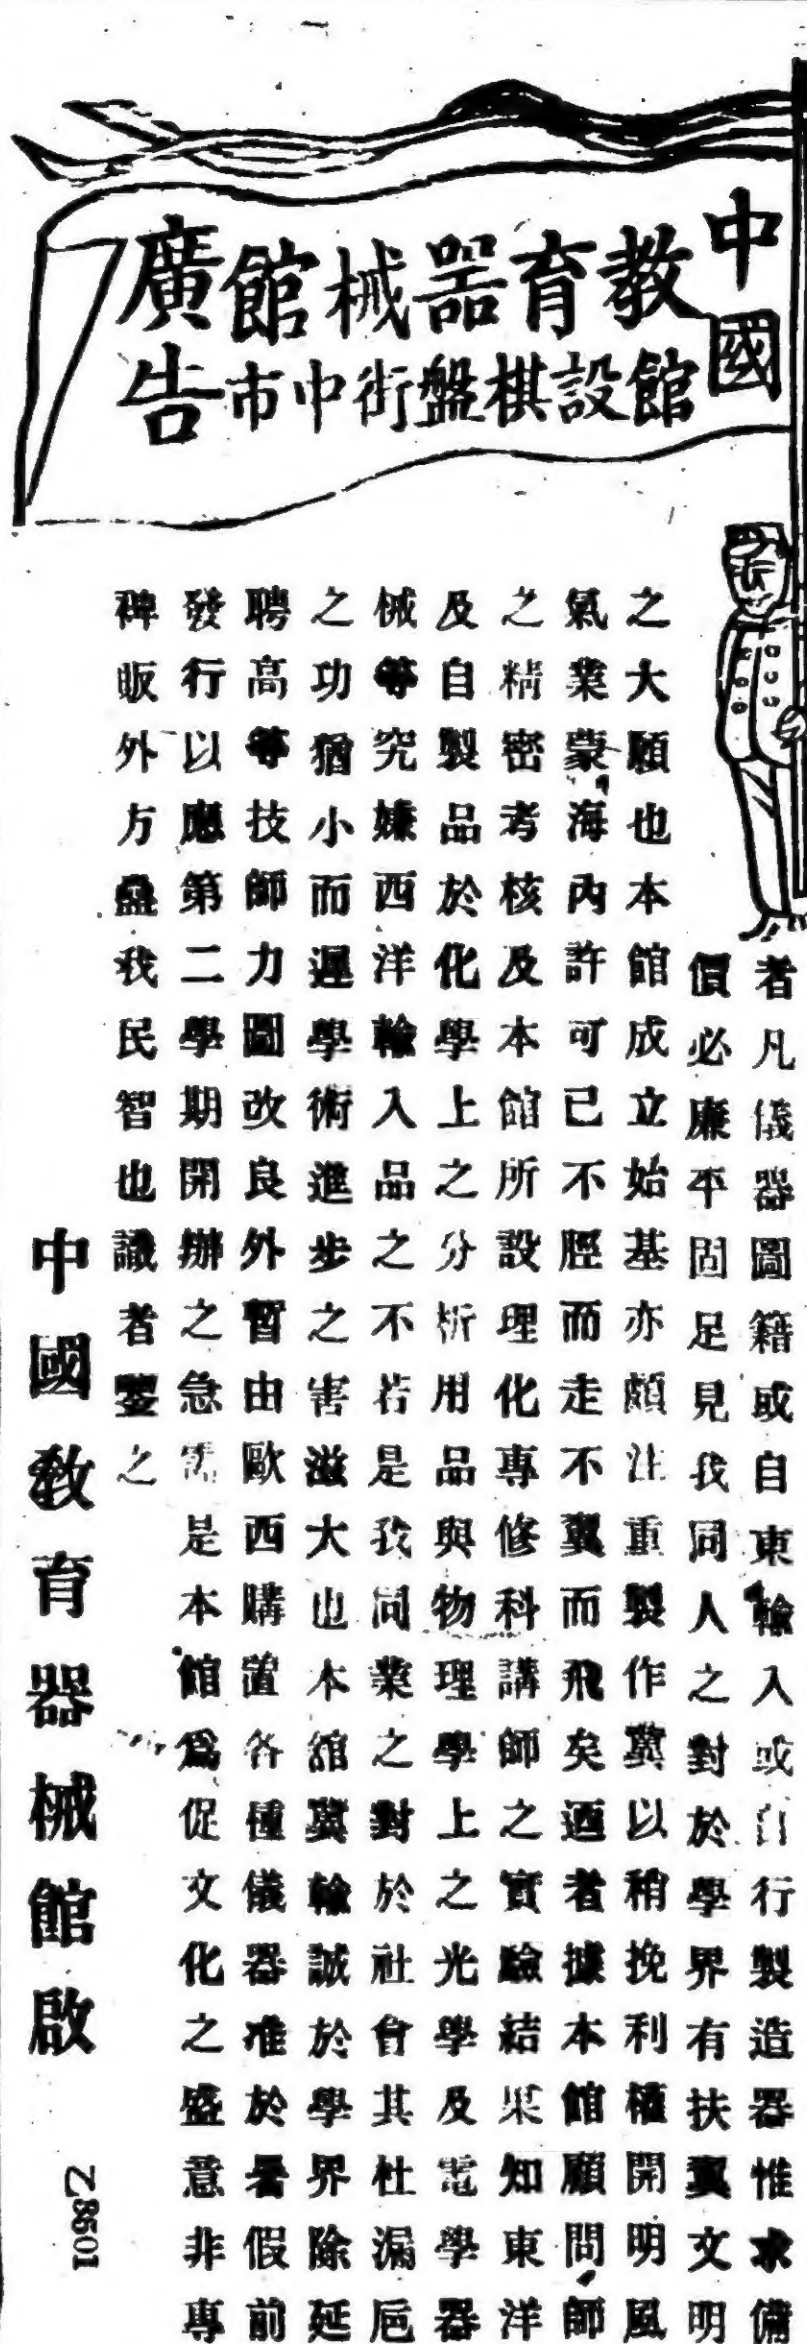 中國
教育器械館
館設棋盤街中市
廣告
者凡儀器圖籍或自東輸入或自行製造器惟求備
價必廉平固足見我同人之對於學界有扶翼文明
之大願也本館成立始基亦頗注重製作冀以稍挽利權開明風
氣業蒙海內許可已不脛而走不翼而飛矣邇者據本館顧問師
之精密考核及本館所設理化專修科講師之實驗結果知東洋
及自製品於化學上之分析用品與物理學上之光學及電學器
械等究嫌西洋輸入品之不若是我同業之對於社會其杜漏巵
之功猶小而遲學術進步之害滋大也本館冀輸誠於學界除延
聘高等技師力圖改良外暫由歐西購置各種儀器准於暑假前
發行以應第二學期開辦之急需是本館爲促文化之盛意非專
裨販外方蠱我民智也識者鑒之
中國教育器械館啟
Z8501